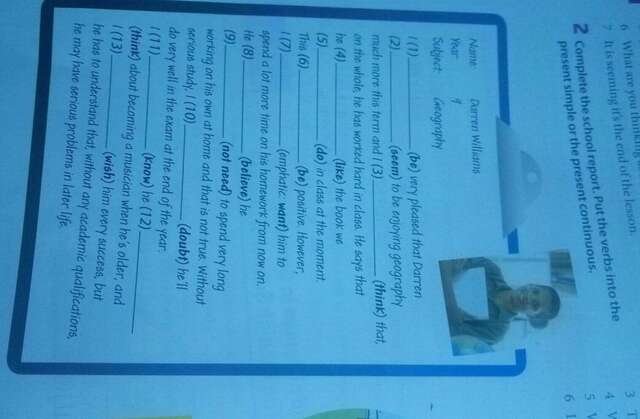 6 What are you
7 It is seeming it's the end of the lesson.
2 Complete the school report. Put the verbs into the
present simple or the present continuous.
Name: Darren Williams
Year: 9
Subject: Geography
I (1) ____________ (be) very pleased that Darren
(2) ____________ (seem) to be enjoying geography
much more this term and I (3) ____________ (think) that,
on the whole, he has worked hard in class. He says that
he (4) ____________ (like) the book we
(5) ____________ (do) in class at the moment.
This (6) ____________ (be) positive. However,
I (7) ____________ (emphatic: want) him to
spend a lot more time on his homework from now on.
He (8) ____________ (believe) he
(9) ____________ (not need) to spend very long
working on his own at home and that is not true. Without
serious study, I (10) ____________ (doubt) he'll
do very well in the exam at the end of the year.
I (11) ____________ (know) he (12) ____________
(think) about becoming a musician when he's older, and
I (13) ____________ (wish) him every success, but
he has to understand that, without any academic qualifications,
he may have serious problems in later life.
3
4
5
6